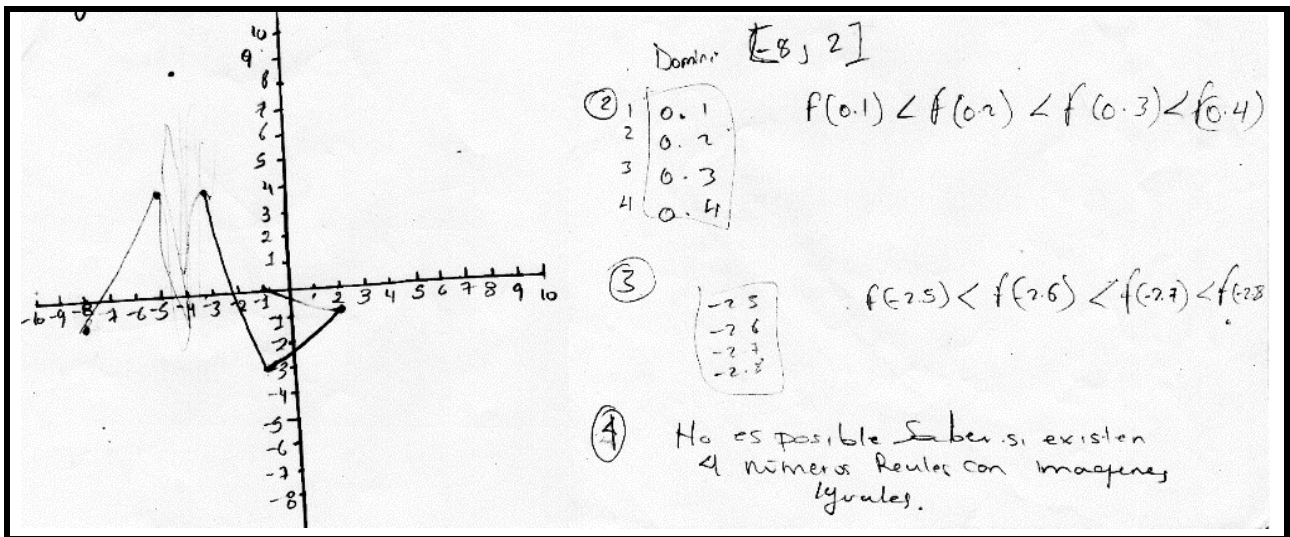 10
9
8
7
6
5
4
3
2
1
-10 -9 -8 -7 -6 -5 -4 -3 -2 -1 1 2 3 4 5 6 7 8 9 10
-1
-2
-3
-4
-5
-6
-7
-8
Domini [-8, 2]
② 1 0.1 f(0.1) < f(0.2) < f(0.3) < f(0.4)
2 0.2
3 0.3
4 0.4
③ -2.5 f(-2.5) < f(-2.6) < f(-2.7) < f(-2.8
-2.6
-2.7
-2.8
④ No es posible Saber si existen
4 números Reales con imagenes
Iguales.